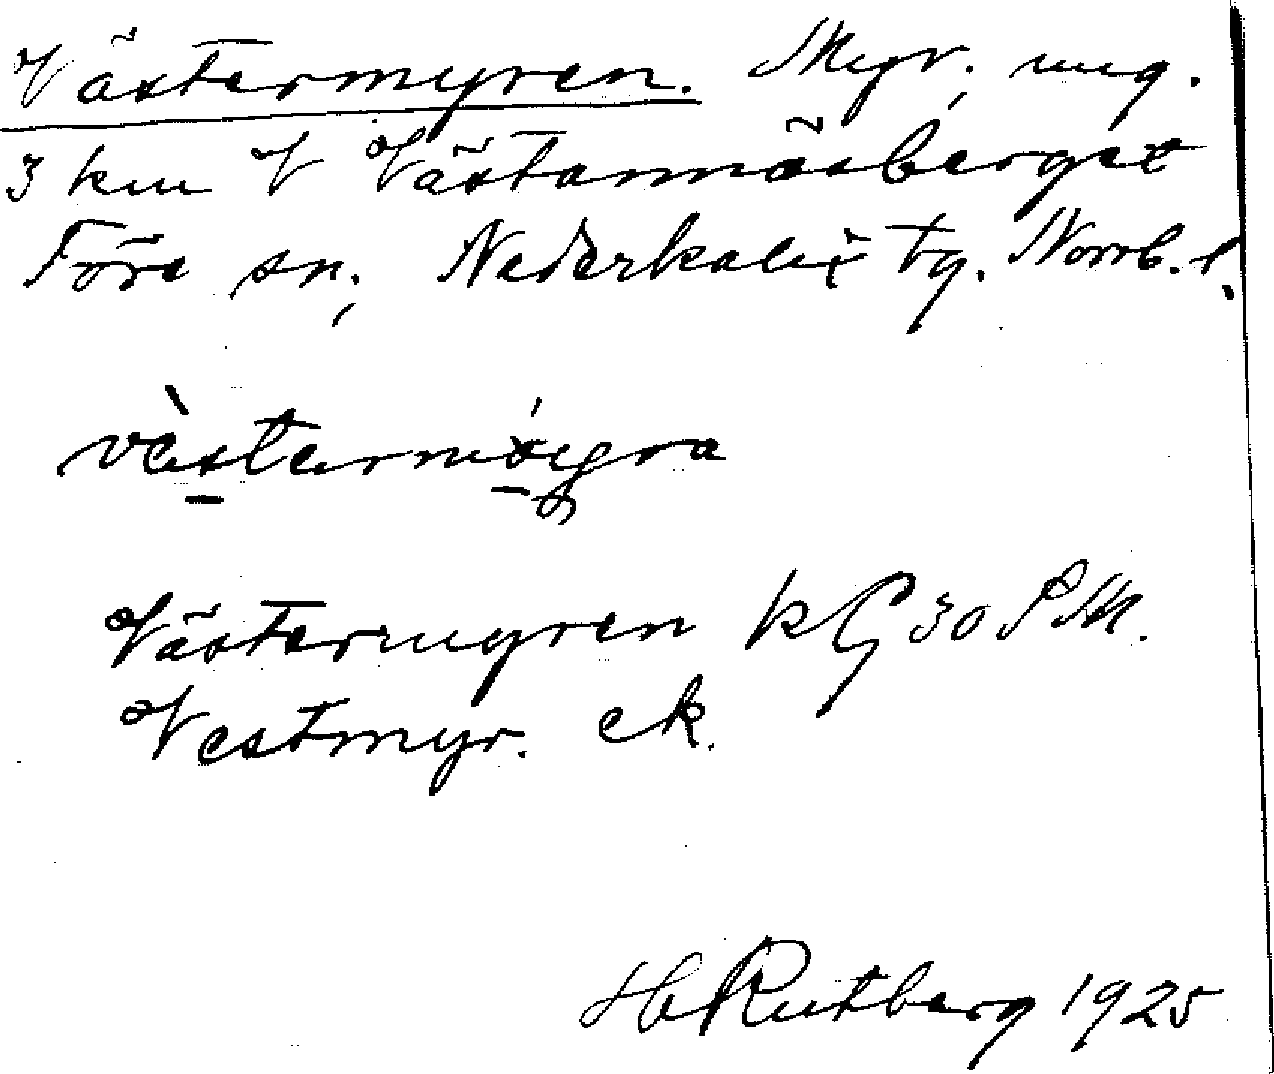 Västermyren. Myr, ung.
3 km V Västannäsberget
Töre sn, Nederkalix tg. Norrb. l.
Västermyren kG 30 S M.
Vestmyr. ek.
H Rutberg 1925